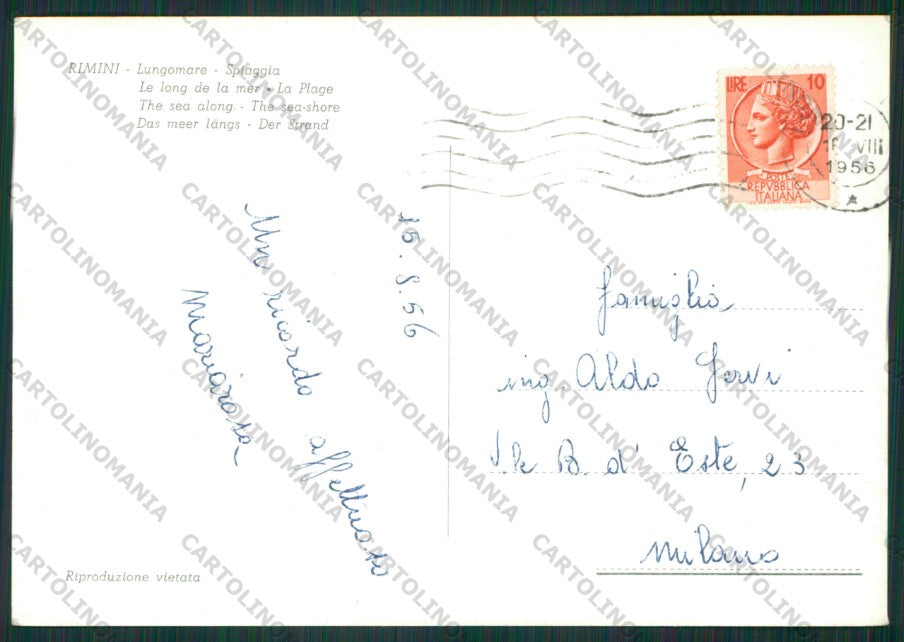 RIMINI - Lungomare - Spiaggia
Le long de la mer - La Plage
The sea along - The sea-shore
Das meer längs - Der Strand
LIRE 10
POSTE
REPVBBLICA
ITALIANA
20-21
VIII
1956
15.8.56
Un ricordo affettuoso
Mariarosa
famiglia
ing. Aldo
V.le B. d' Este, 23
Milano
Riproduzione vietata
CARTOLINOMANIA